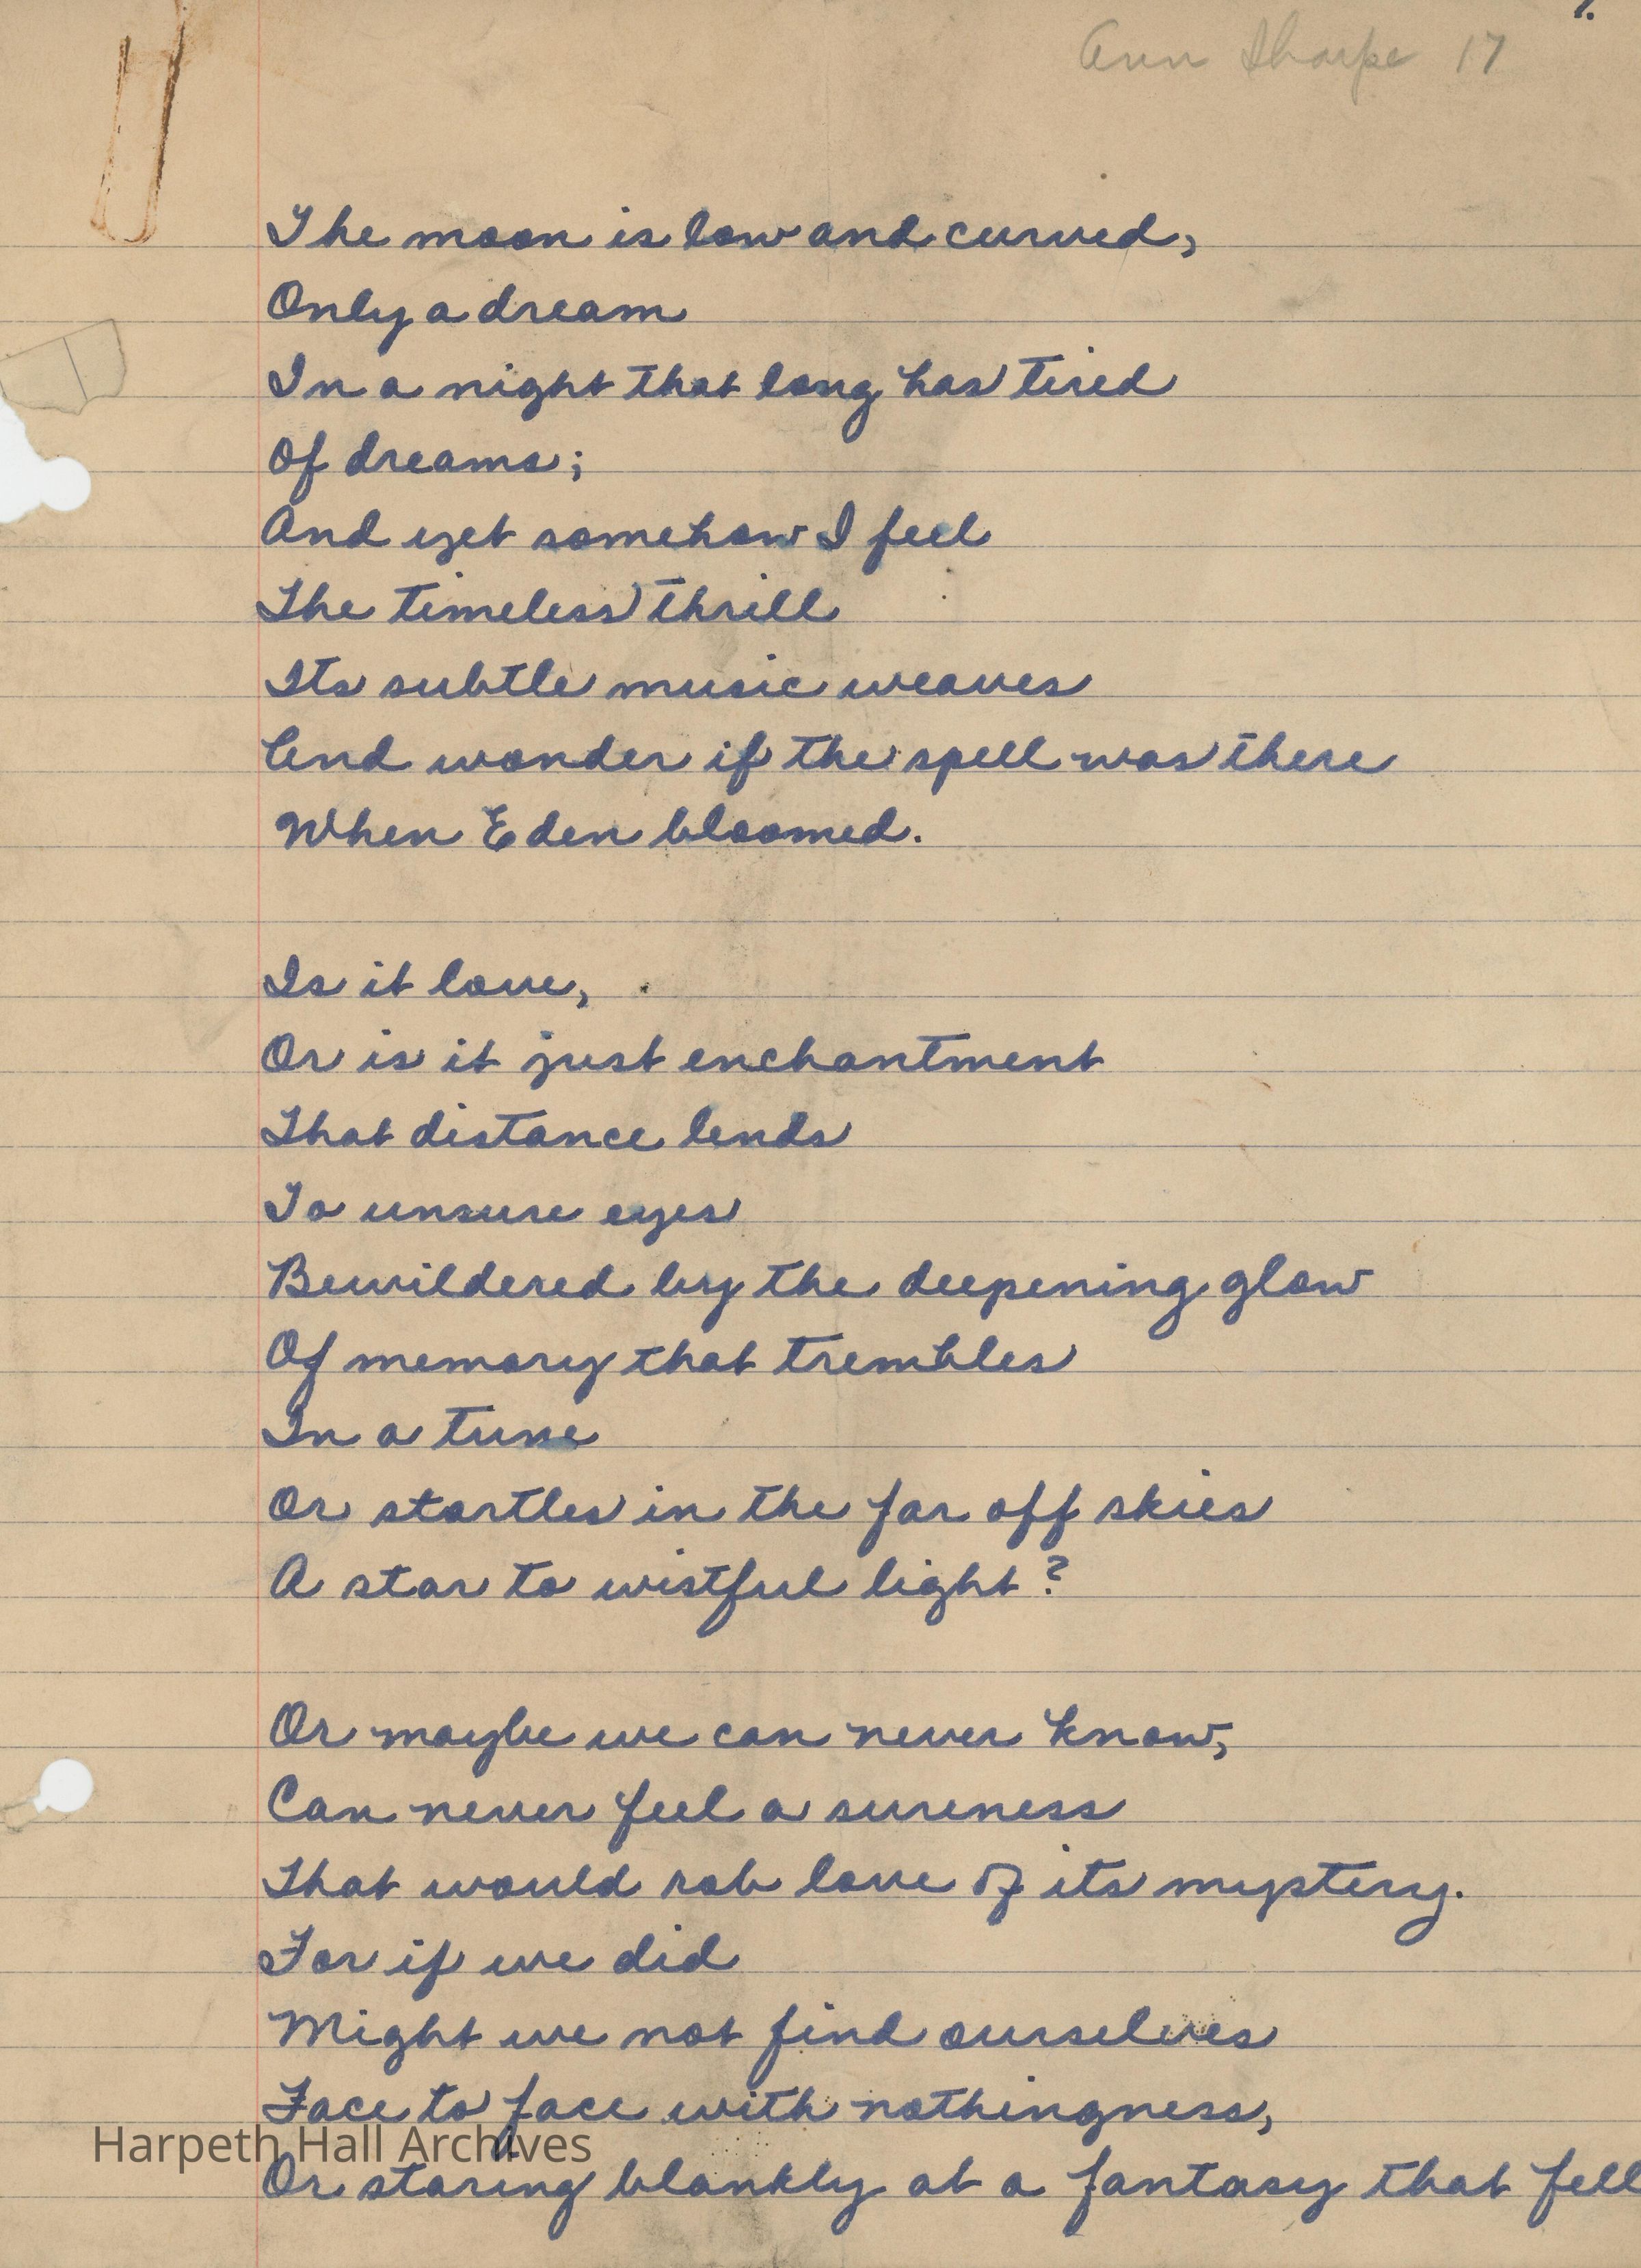 1.
Ann Sharpe 17
The moon is low and curved,
Only a dream
In a night that long has tired
Of dreams;
And yet somehow I feel
The timeless thrill
Its subtle music weaves
And wonder if the spell was there
When Eden bloomed.
Is it love,
Or is it just enchantment
That distance lends
To unsure eyes
Bewildered by the deepening glow
Of memory that trembles
In a tune
Or startles in the far off skies
A star to wistful light?
Or maybe we can never know,
Can never feel a sureness
That would rob love of its mystery.
For if we did
Might we not find ourselves
Face to face with nothingness,
Harpeth Hall Archives
Or staring blankly at a fantasy that fell